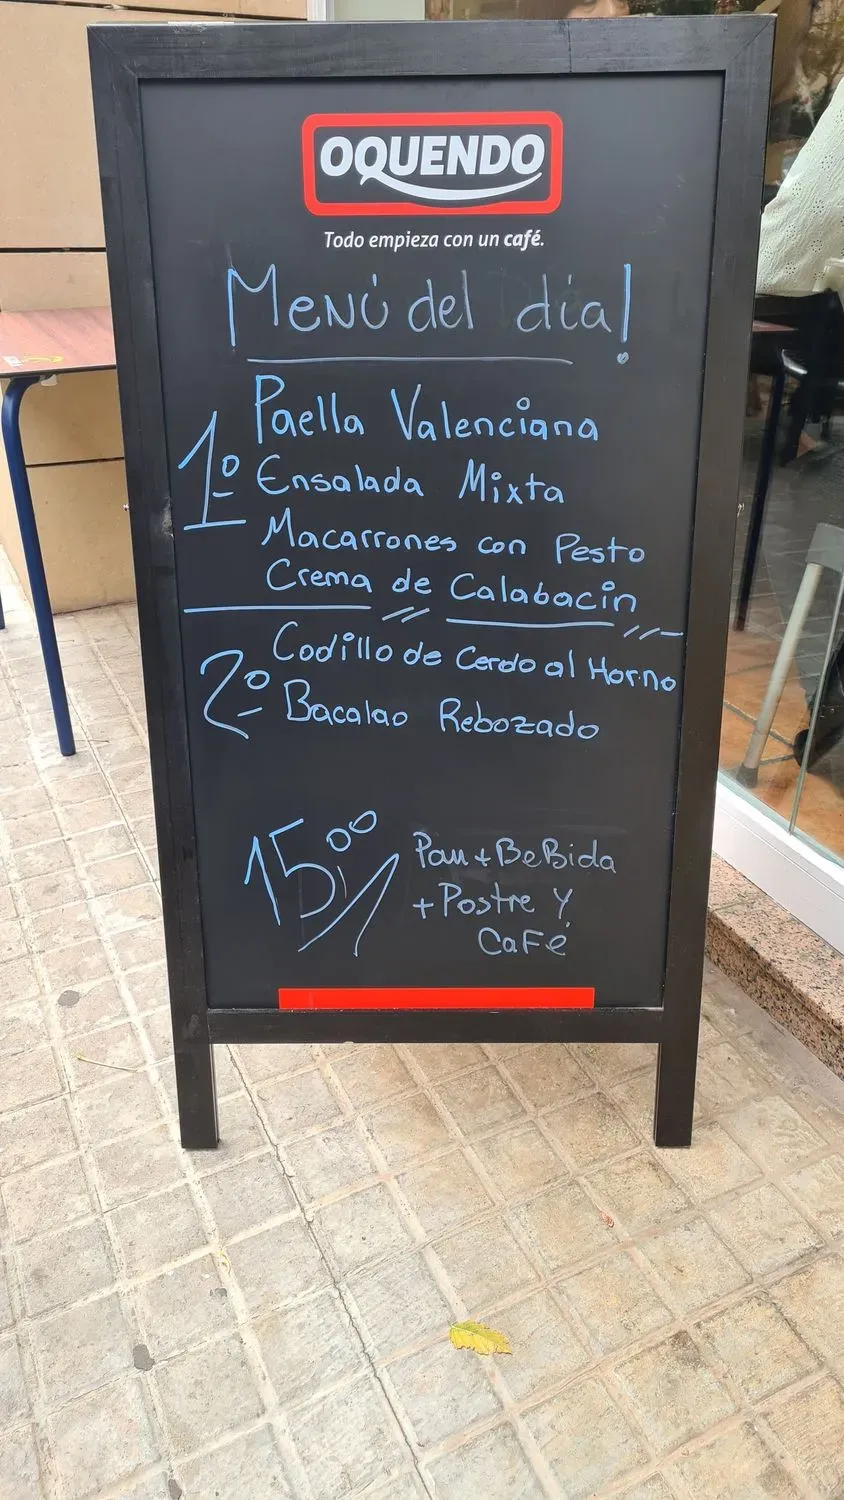 OQUENDO
Todo empieza con un café.
Menú del día!
1º
Paella Valenciana
Ensalada Mixta
Macarrones con Pesto
Crema de Calabacin
2º
Codillo de Cerdo al Horno
Bacalao Rebozado
15,00/
Pan + BeBida
+ Postre y
Café